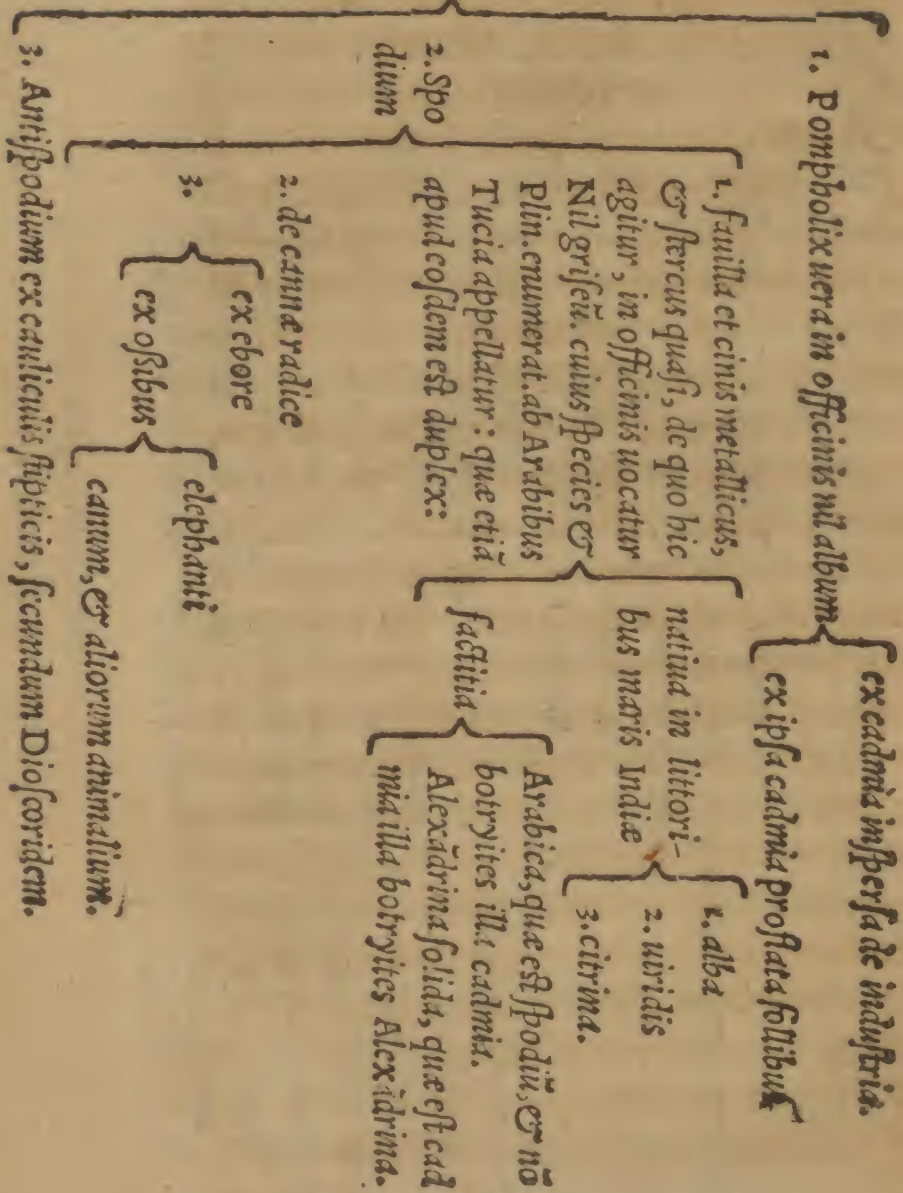 1. Pompholix uera in officinis nil album
ex cadmia inspersa de industria.
ex ipsa cadmia proflata follibus
2. Spo
dium
1. fauilla et cinis metallicus,
& stercus quasi, de quo hic
agitur, in officinis uocatur
Nil griseũ. cuius species &
Plin. enumerat. ab Arabibus
Tucia appellatur: quæ etiã
apud eosdem est duplex:
natiua in littori-
bus maris Indiæ
1. alba
2. uiridis
3. citrina.
factitia
Arabica, quæ est spodiũ, & nõ
botryites illa cadmia.
Alexãdrina solida, quæ est cad
mia illa botryites Alexãdrina.
2. de cannæ radice
3.
ex ebore
ex oßibus
elephanti
canum, & aliorum animalium.
3. Antispodium ex cauliculis stipticis, secundum Dioscoridem.